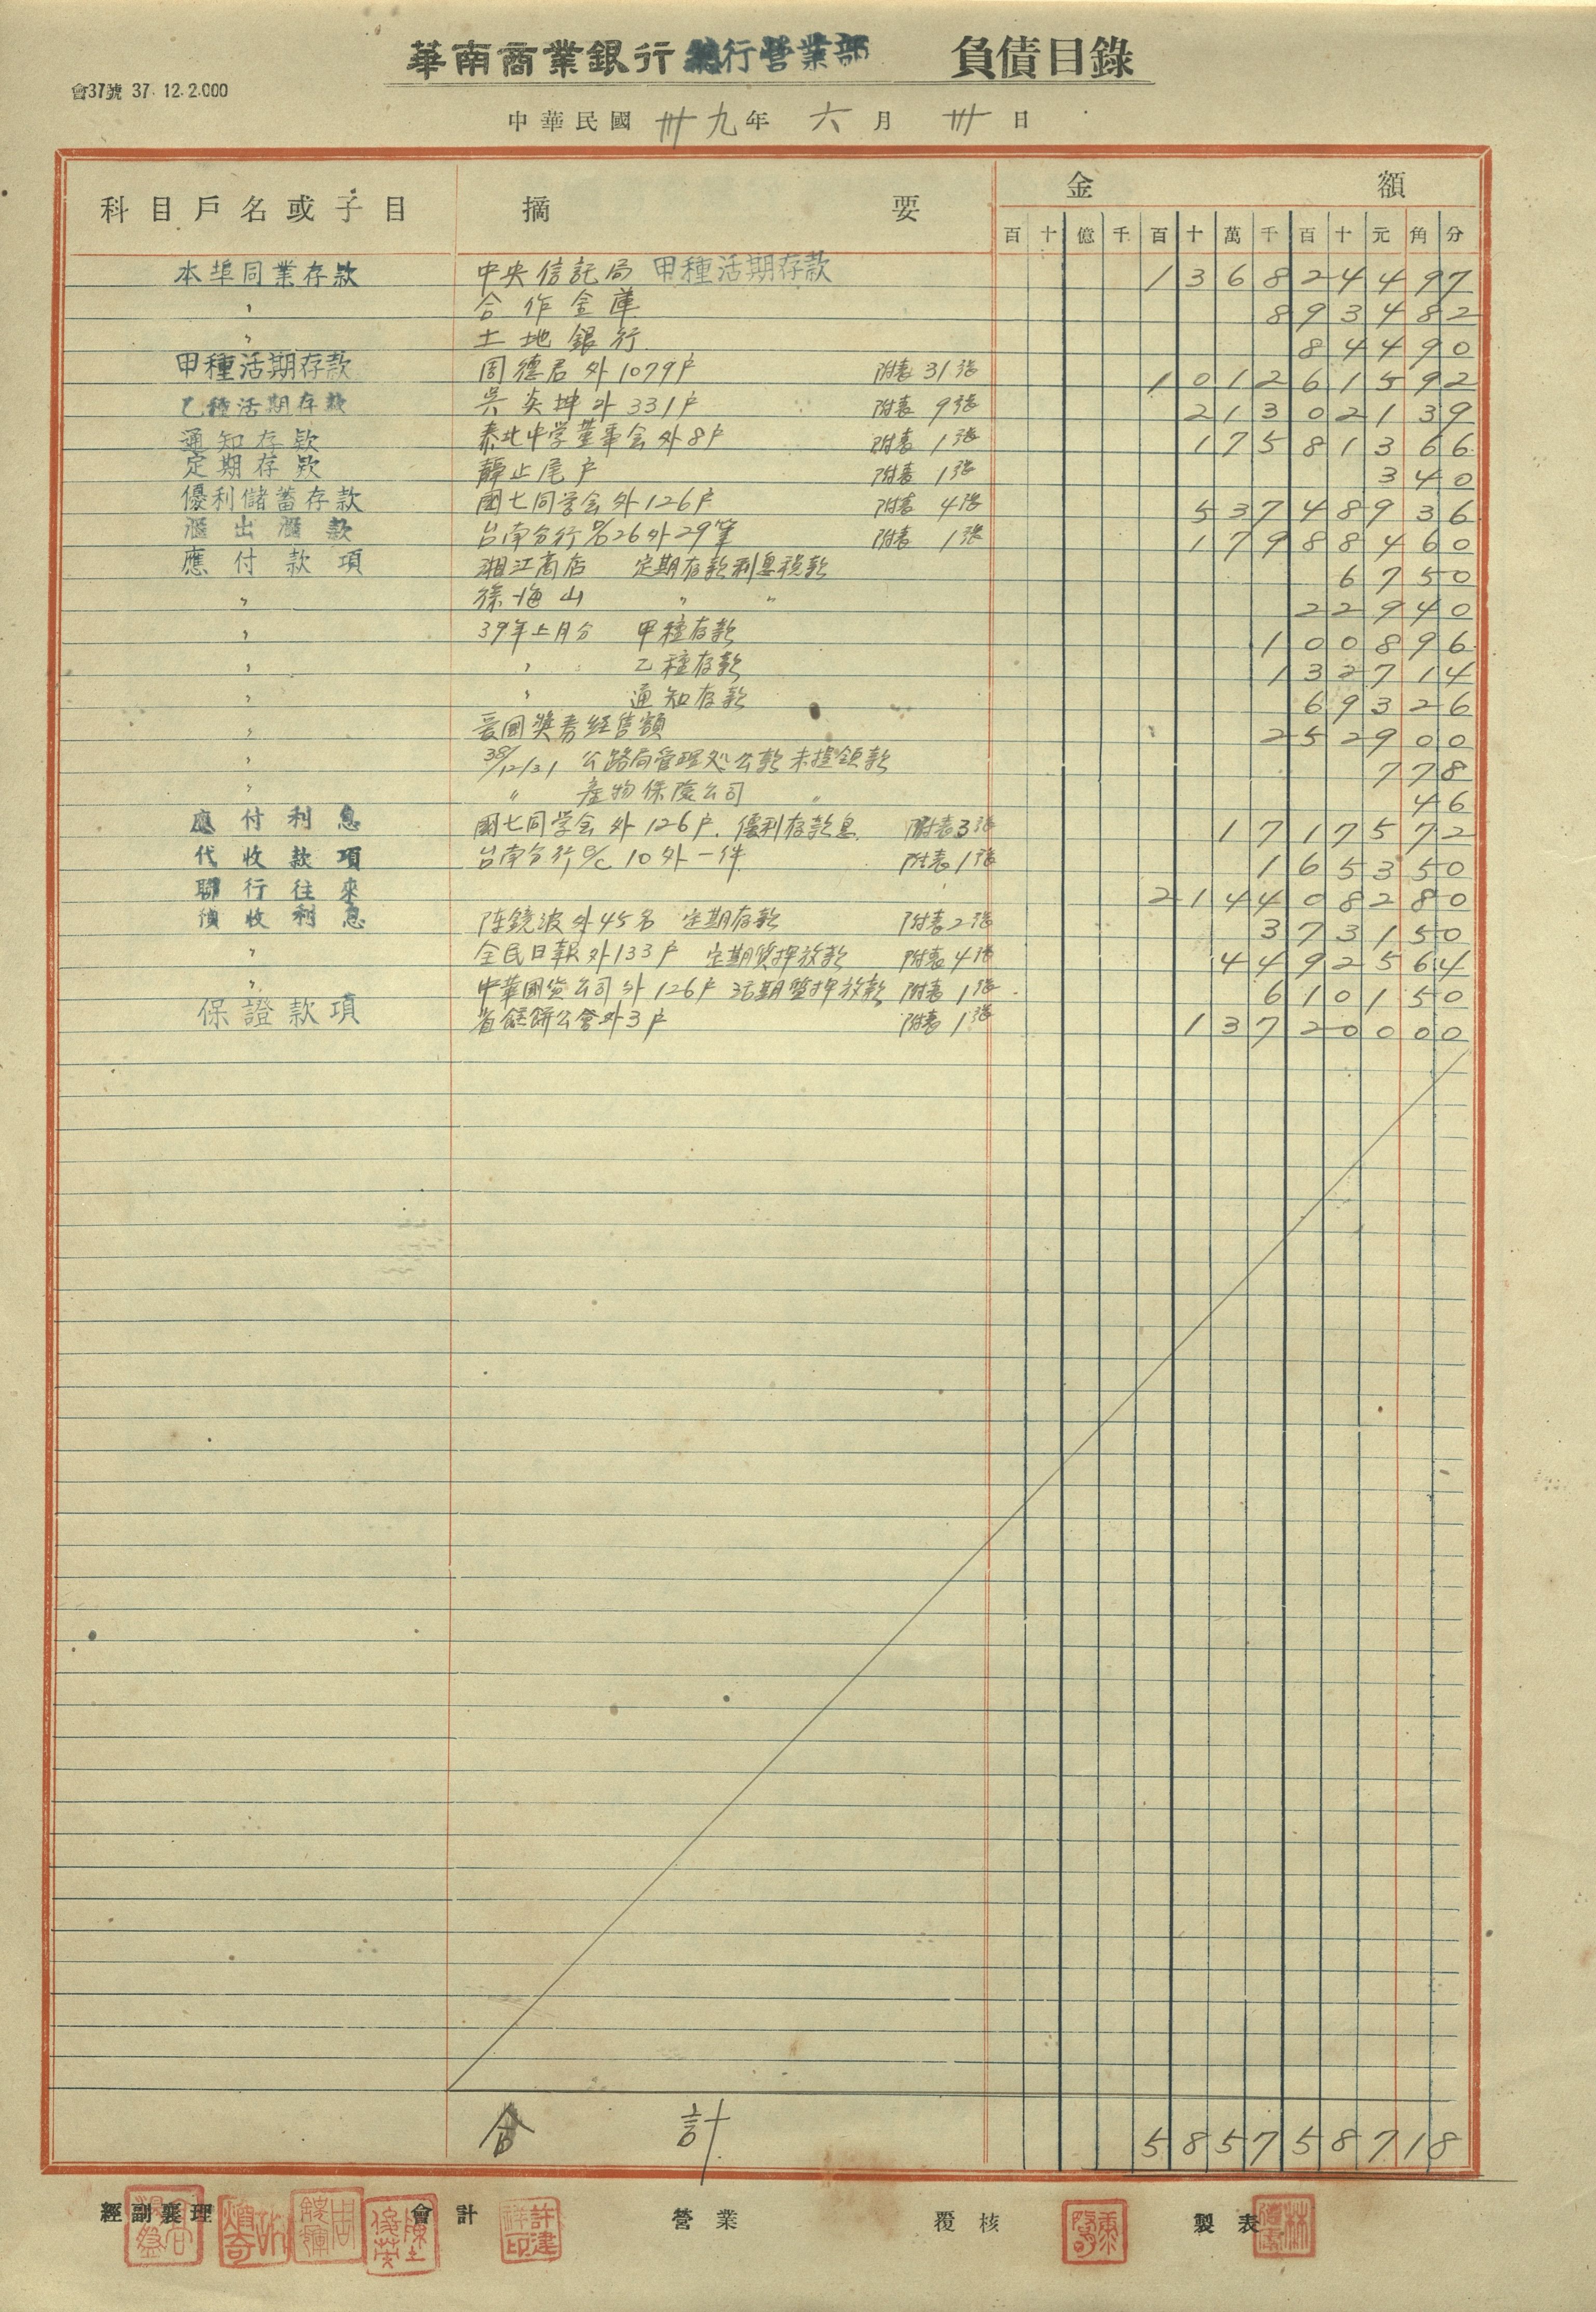 華南商業銀行總行營業部 負債目錄
會37號 37.12.2.000
中華民國卅九年六月卅日
科目戶名或子目 摘要 金額
百十億千百十萬千百十元角分
本埠同業存款 中央信託局 甲種活期存款 136824497
〃 合作金庫 893482
〃 土地銀行 84490
甲種活期存款 周德君外1079户 附表31張 101261592
乙種活期存款 吳炎坤外331户 附表9張 21302139
通知存款 泰北中学董事会外8户 附表1張 17581366
定期存款 靜止尾户 附表1張 340
優利儲蓄存款 國七同学会外126户 附表4張 53748936
滙出滙款 台南分行 26外29筆 附表1張 17988460
應付款項 湘江商店 定期存款利息稅款 6750
〃 徐海山 〃 〃 22940
〃 39年上月分 甲種存款 100896
〃 〃 乙種存款 132714
〃 〃 通知存款 69326
〃 爰國獎券經售額 252900
〃 38/12/31 公路局管理処公款未提領款 778
〃 〃 產物保險公司 〃 46
應付利息 國七同学会外126户.優利存款息 附表3張 1717572
代收款項 台南分行B/C 10外一件 附表1張 165350
聯行往來 214408280
預收利息 陈鏡波外45名 定期存款 附表2張 373150
〃 全民日報外133户 定期質押放款 附表4張 4492564
〃 中華國貨公司外126户 活期質押放款 附表1張 610150
保證款項 省餅公會外3户 附表1張 13720000
合計 585758718
經副襄理 會計 營業 覆核 製表
許建祥印